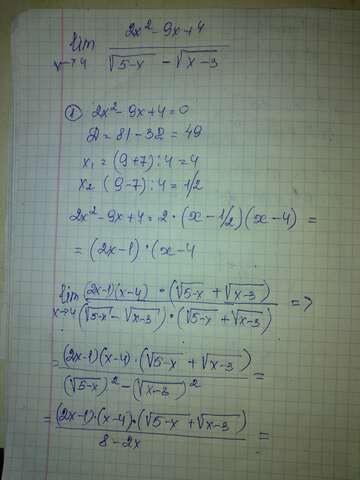 lim 2x² - 9x + 4
x→4 √5-x - √x-3
① 2x² - 9x + 4 = 0
D = 81 - 32 = 49
x₁ = (9+7) : 4 = 4
x₂ (9-7) : 4 = 1/2
2x² - 9x + 4 = 2 · (x - 1/2)(x - 4) =
= (2x-1) · (x - 4
lim (2x-1)(x-4) · (√5-x + √x-3) =>
x→4 (√5-x - √x-3) · (√5-x + √x-3)
= (2x-1)(x-4) · (√5-x + √x-3) =
(√5-x)² - (√x-3)²
= (2x-1) · (x-4) · (√5-x + √x-3) =
8 - 2x